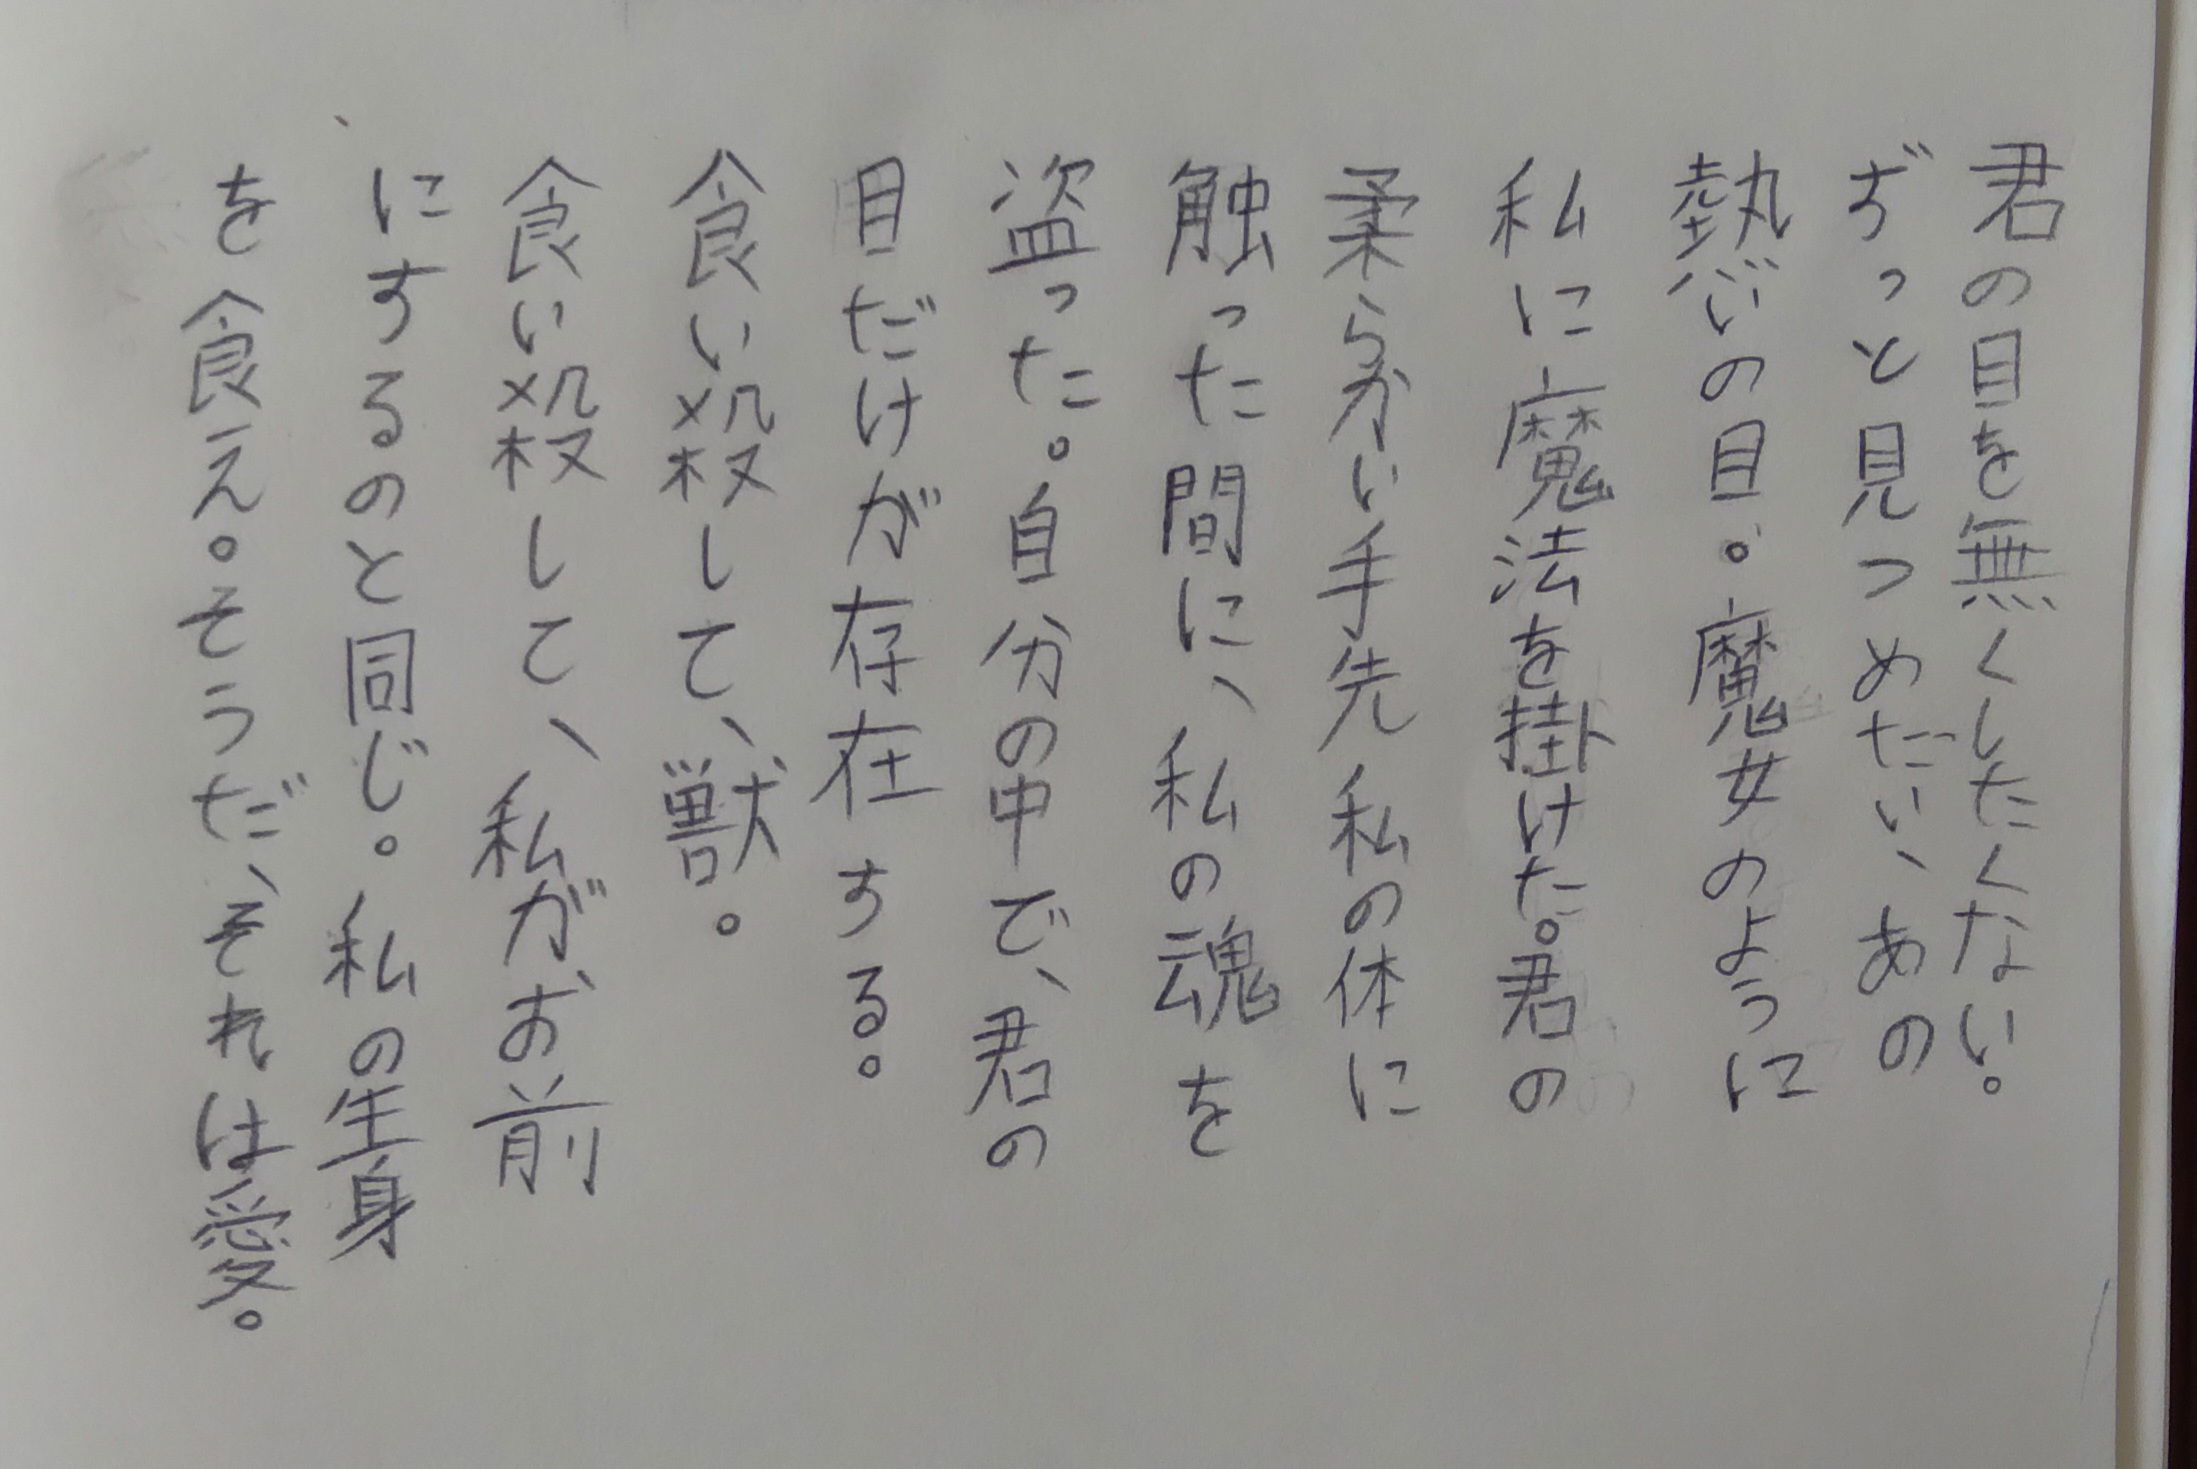 君の目を無くしたくない。
ずっと見つめたい、あの
熱いの目。魔女のように
私に魔法を掛けた。君の
柔らかい手先私の体に
触った間に、私の魂を
盗った。自分の中で、君の
目だけが存在する。
食い殺して、獣。
食い殺して、私がお前
にするのと同じ。私の生身
を食え。そうだ、それは愛。